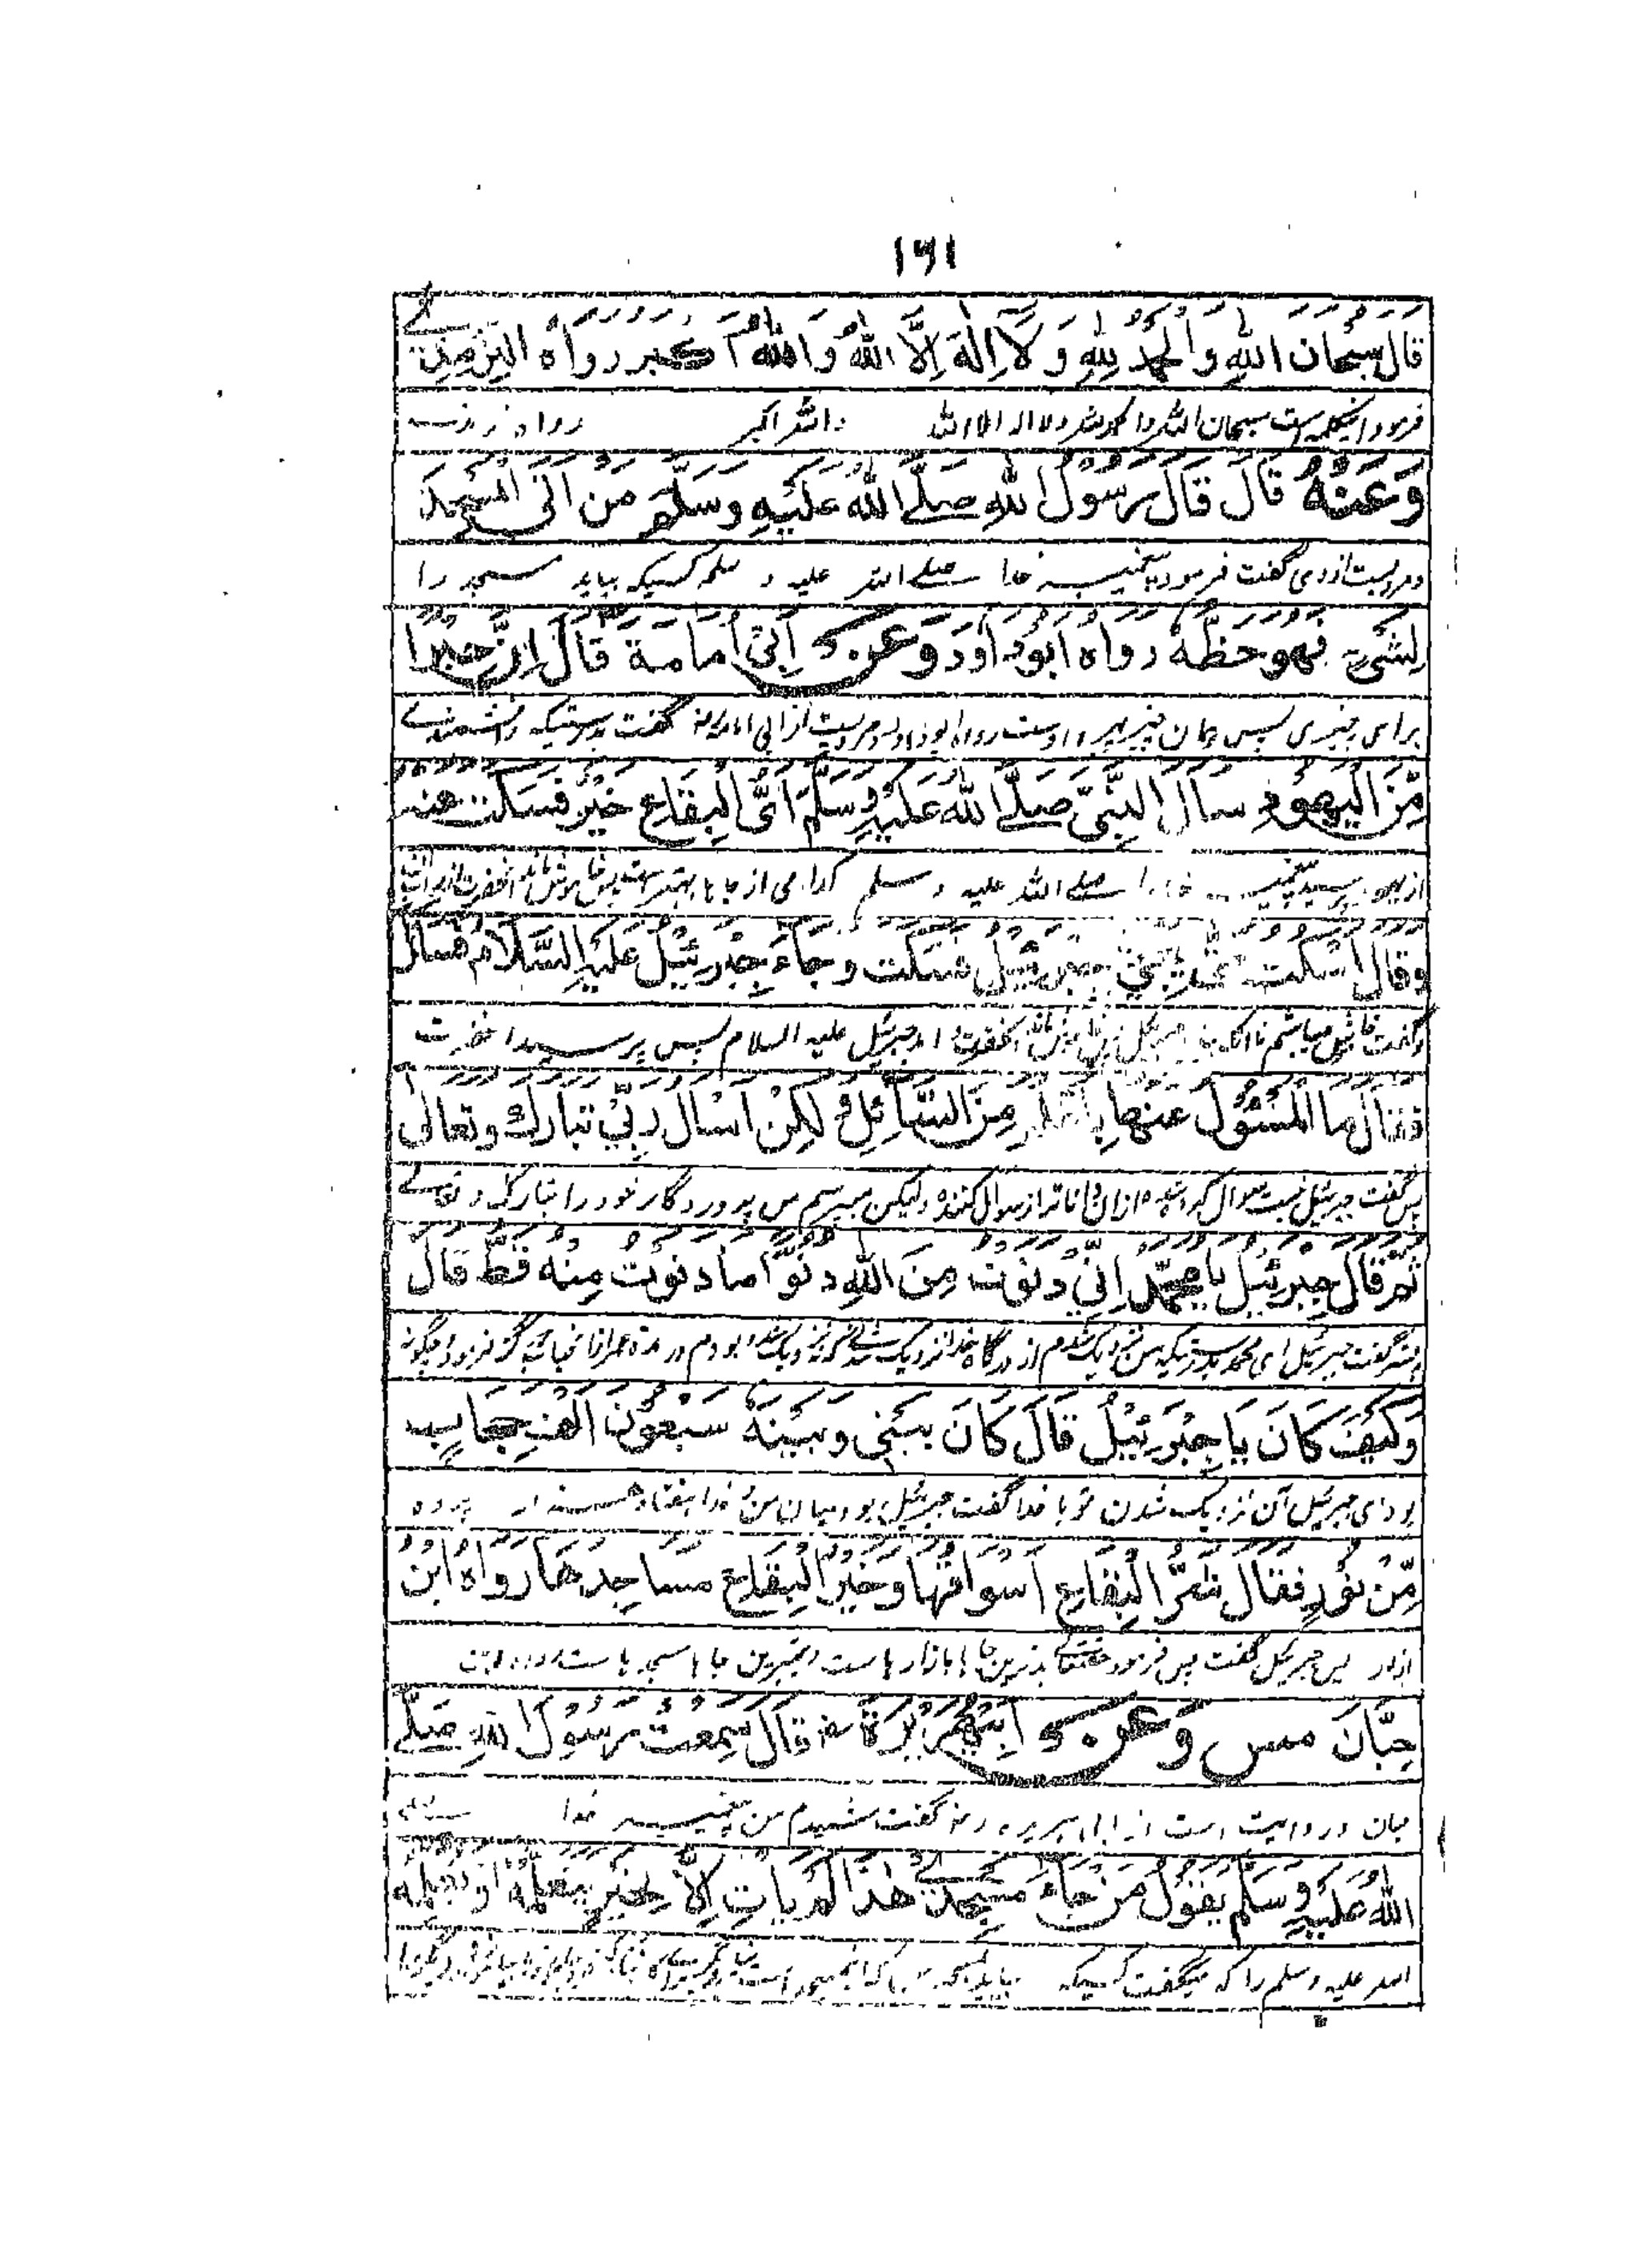 ۱۶۱
قَالَ سُبْحَانَ اللهِ وَالْحَمْدُ لِلهِ وَلَا اِلٰهَ اِلَّا اللهُ وَاللهُ اَكْبَر رَوَاهُ التِّرْمِذِيْ
فرمود اینکلمه است سبحان الله والحمد لله ولا اله الا الله والله اکبر رواه
وَعَنْهُ قَالَ قَالَ رَسُوْلُ اللهِ صَلَّے اللهُ عَلَيْهِ وَسَلَّمَ مَنْ اَتَى الْمَسْجِدَ
ومرویست از وی گفت فرمود پیغمبر خدا صلے الله علیه و سلم کسیکه بیاید مسجد را
لِشَيْءٍ فَهُوَ حَظُّهُ رَوَاهُ اَبُوْدَاوُدَ وَعَنْ اَبِيْ اُمَامَةَ قَالَ اِنَّ حِبْرًا
برای چیزی پس همان چیز بهره اوست رواه ابوداود ومرویست از ابی امامه رض گفت بدرستیکه دانشمندے
مِّنَ الْيَهُوْدِ سَاَلَ النَّبِيَّ صَلَّے اللهُ عَلَيْهِ وَسَلَّمَ اَيُّ الْبِقَاعِ خَيْرٌ فَسَكَتَ عَنْهُ
از یهود پرسید پیغمبر خدا را صلے الله علیه و سلم کدامی از جاها بهتر است پس خاموش ماند آنحضرت
وَقَالَ اَسْكُتُ حَتّٰى يَجِيْءَ جِبْرَئِيْلُ فَسَكَتَ وَجَاءَ جِبْرَئِيْلُ عَلَيْهِ السَّلَامُ فَسَاَلَ
وگفت خاموش میباشم تا آنکه بیاید جبرئیل پس خاموش ماند آنحضرت وآمد جبرئیل علیه السلام پس پرسید آنحضرت
فَقَالَ مَا الْمَسْئُوْلُ عَنْهَا بِاَعْلَمَ مِنَ السَّائِلِ وَ لٰكِنْ اَسْاَلُ رَبِّيْ تَبَارَكَ وَتَعَالٰى
پس گفت جبرئیل نیست سوال کرده شده ازان داناتر از سوال کننده ولیکن میپرسم من پروردگار خود را تبارک و تعالے
ثُمَّ قَالَ جِبْرَئِيْلُ يَا مُحَمَّدُ اِنِّيْ دَنَوْتُ مِنَ اللهِ دُنُوًّا مَا دَنَوْتُ مِنْهُ قَطُّ قَالَ
گفت جبرئیل ای محمد بدرستیکه من نزدیک شدم از درگاه خدا نزدیک شدنی
وَكَيْفَ كَانَ يَا جِبْرَئِيْلُ قَالَ كَانَ بَيْنِيْ وَبَيْنَهُ سَبْعُوْنَ اَلْفَ حِجَابٍ
بود ای جبرئیل آن نزدیک شدن تو با خدا گفت جبرئیل بود میان من و خدا هفتاد هزار پرده
مِّنْ نُوْرٍ فَقَالَ شَرُّ الْبِقَاعِ اَسْوَاقُهَا وَخَيْرُ الْبِقَاعِ مَسَاجِدُهَا رَوَاهُ ابْنُ
از نور پس جبرئیل گفت پس فرمود بدترین جاها بازارهاست وبهترین جاها مسجدهاست رواه ابن
حِبَّانَ مس وَعَنْ اَبِيْ هُرَيْرَةَ رض قَالَ سَمِعْتُ رَسُوْلَ اللهِ صَلَّے
حبان وروایت است از ابی هریره رض گفت شنیدم من پیغمبر خدا
اللهُ عَلَيْهِ وَسَلَّمَ يَقُوْلُ مَنْ جَاءَ مَسْجِدِيْ هٰذَا لَمْ يَاْتِ اِلَّا لِخَيْرٍ يَتَعَلَّمُهُ اَوْ يُعَلِّمُهُ
الله علیه وسلم را که میگفت کسیکه بیاید